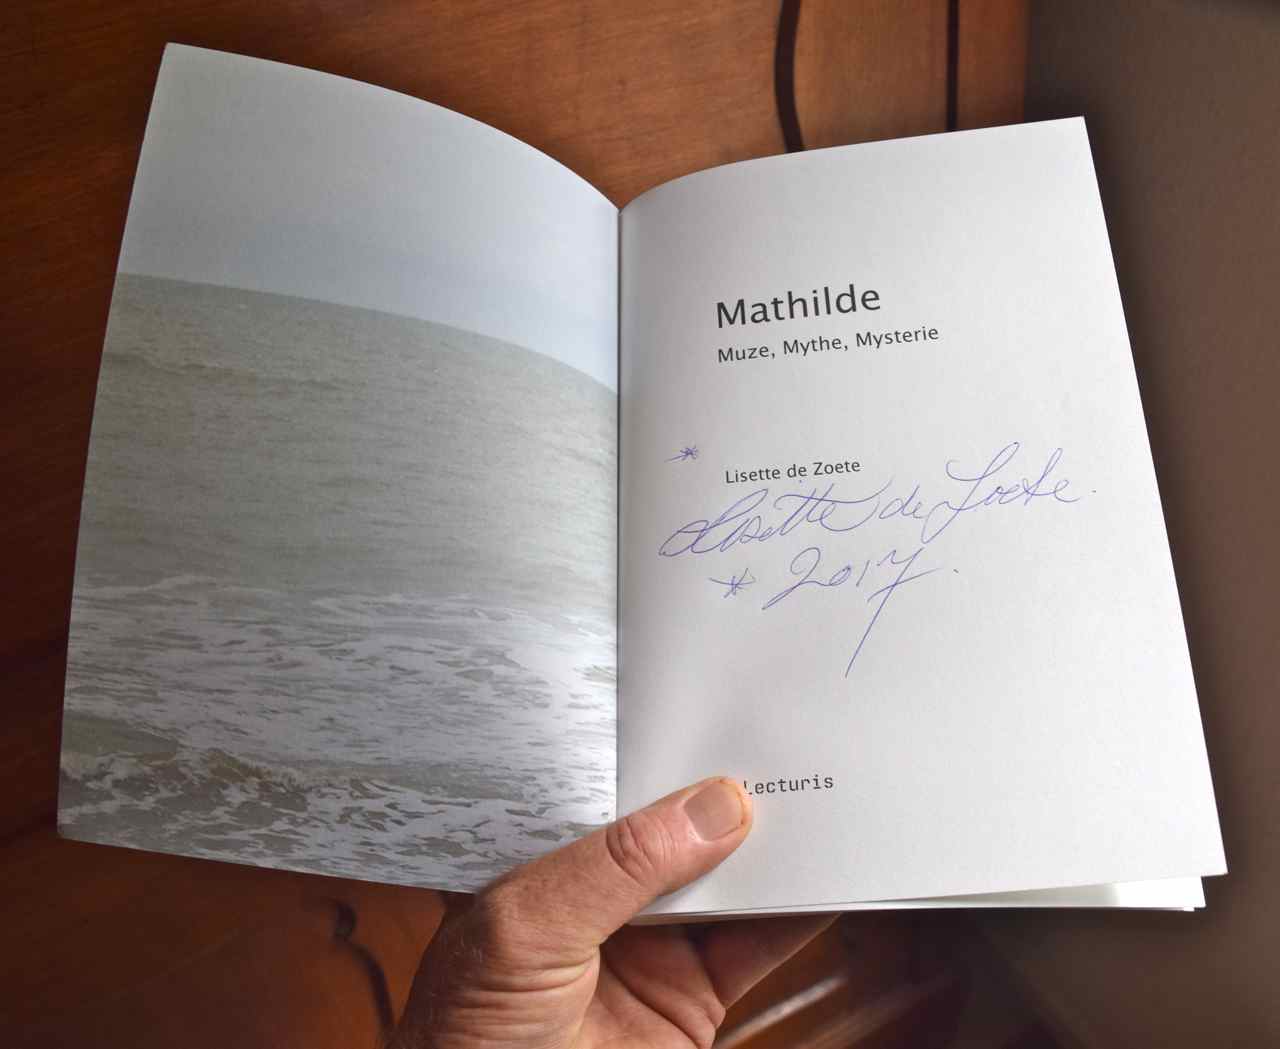 Mathilde
Muze, Mythe, Mysterie
*
Lisette de Zoete
Lisette de Zoete.
* 2017.
Lecturis